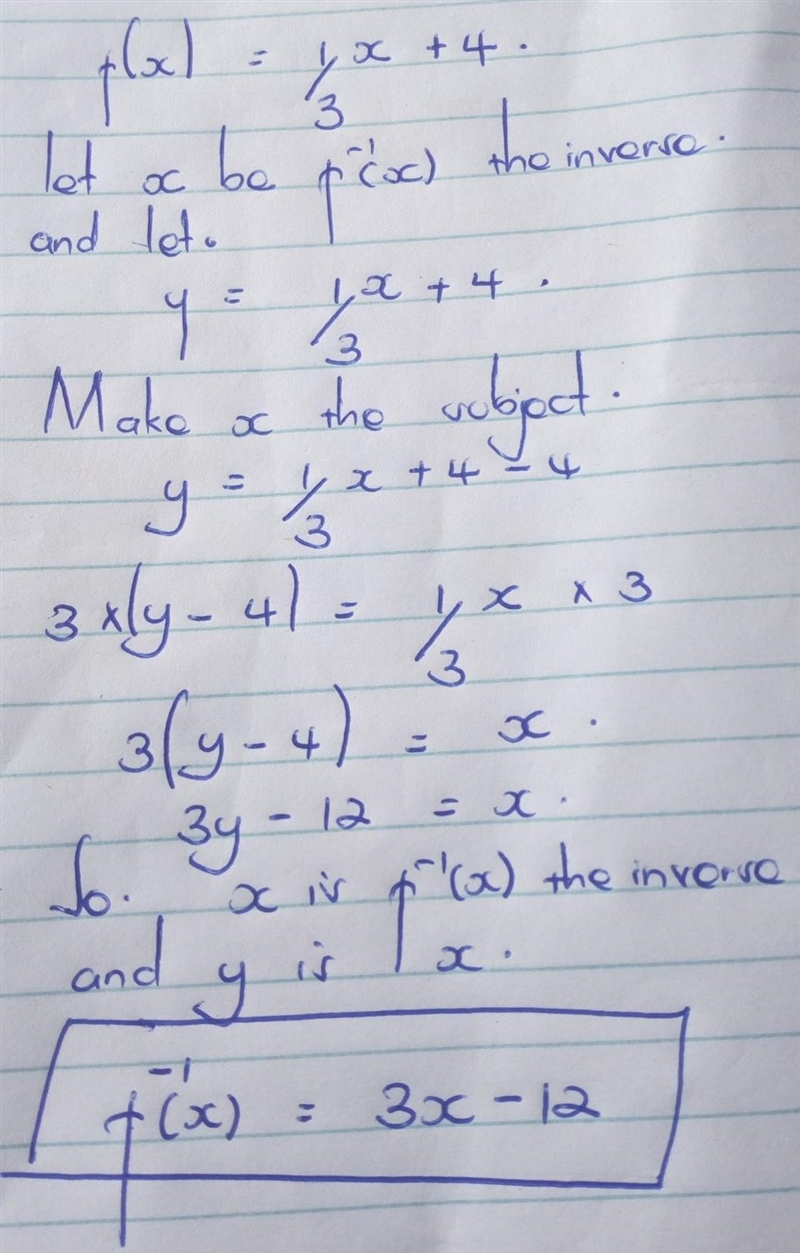 f(x) = 1/3 x + 4.
let x be f⁻¹(x) the inverse.
and let.
y = 1/3 x + 4.
Make x the subject.
y = 1/3 x + 4 - 4
3 x(y - 4) = 1/3 x × 3
3(y - 4) = x.
3y - 12 = x.
So. x is f⁻¹(x) the inverse
and y is x.
f⁻¹(x) = 3x - 12